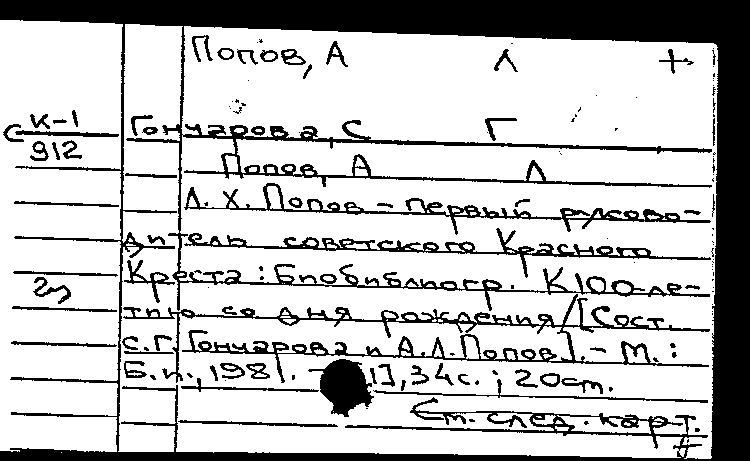 Попов, А Л +
Гончарова, С Г
С К-1
912
Попов, А Л
Л. Х. Попов – первый руково-
дитель советского Красного
Креста : Биобиблиогр. К 100-ле-
тию со дня рождения / [Сост.
С.Г. Гончарова и А.Л. Попов]. – М. :
Б.и., 1981. – 1], 34 с. ; 20 см.
См. след. карт.